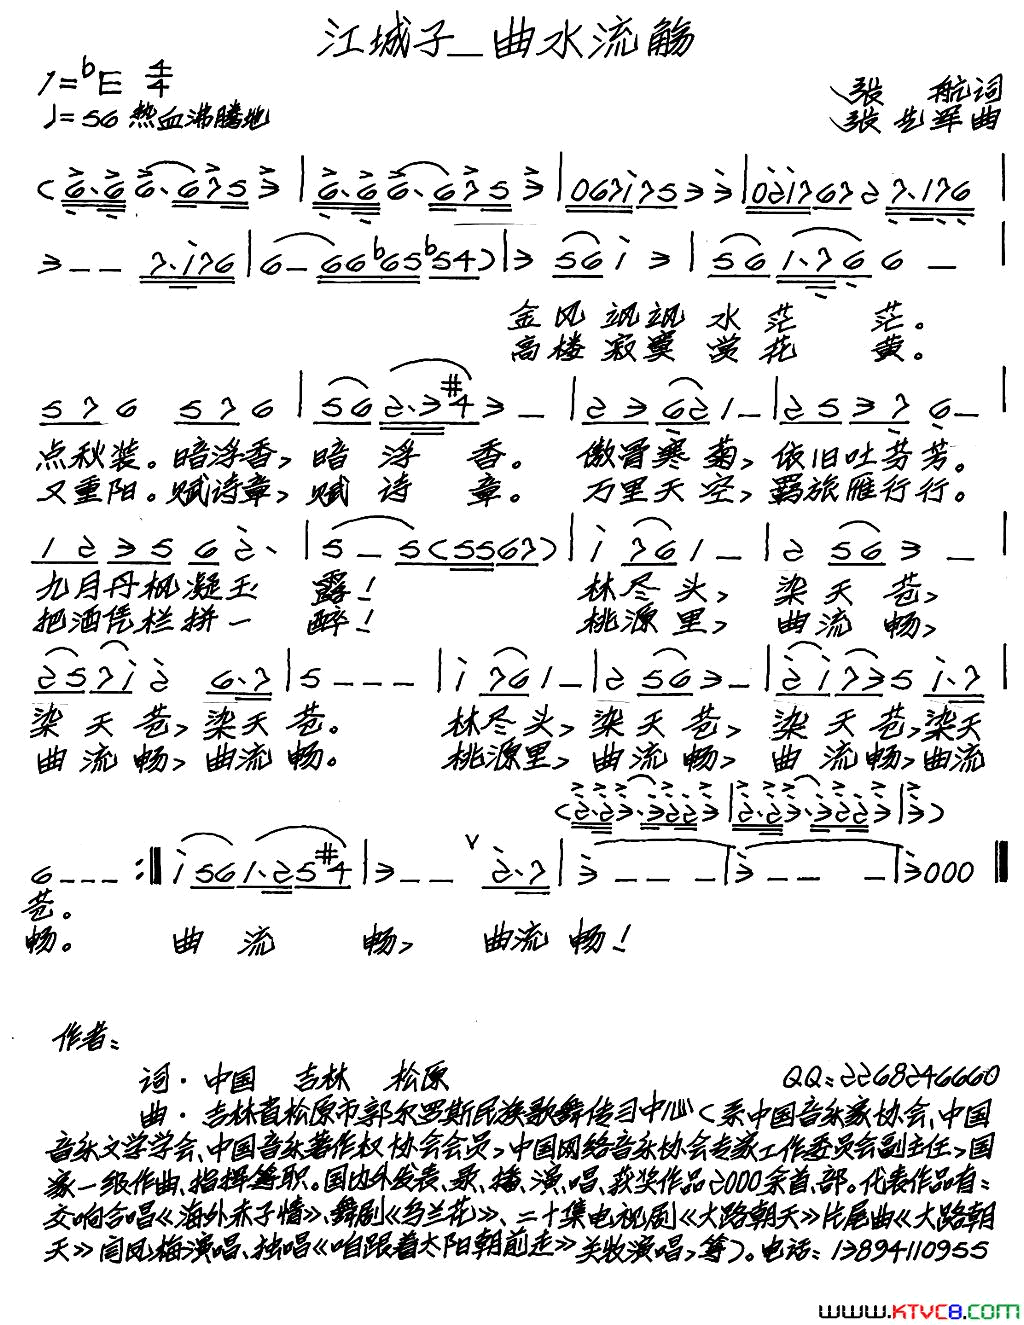 江城子_曲水流觞
1=ᵇE 4/4
♩=56 热血沸腾地
张 航词
张艺军曲
(6·6 6·6 7 5 3 | 6·6 6·6 7 5 3 | 0 6 7 i 7 5 3 3 | 0 2 i 7 6 7 2 7·1 7 6 |
3 – – 7·i 7 6 | 6 – 6 6 ᵇ6 5 ᵇ5 4) | 3 5 6 i 3 | 5 6 1·7 6 6 – |
金风飒飒水茫茫。
高楼寂寞赏花黄。
5 7 6 5 7 6 | 5 6 2·3 #4 3 – | 2 3 6 2 1 – | 2 5 3 7 6 – |
点秋装。暗浮香,暗浮香。傲骨寒菊,依旧吐芬芳。
又重阳。赋诗章,赋诗章。万里天空,羁旅雁行行。
1 2 3 5 6 2· | 5 – 5 (5 5 6 7) | i 7 6 1 – | 2 5 6 3 – |
九月丹枫凝玉露!林尽头,染天苍,
把酒凭栏拼一醉!桃源里,曲流畅,
2 5 7 i 2 6·7 | 5 – – – | i 7 6 1 – | 2 5 6 3 – | 2 i 7 3 5 i·7 |
染天苍,染天苍。林尽头,染天苍,染天苍,染天
曲流畅,曲流畅。桃源里,曲流畅,曲流畅,曲流
(2·2 3·3 2 2 3 | 2·2 3·3 2 2 3 | 3)
6 – – – :‖ i 5 6 1·2 5 #4 | 3 – – ∨ 2·7 | 3 – – – | 3 – – – | 3 0 0 0 ‖
苍。
畅。曲流畅,曲流畅!
作者:
词·中国 吉林 松原 QQ:2268246660
曲·吉林省松原市郭尔罗斯民族歌舞传习中心(系中国音乐家协会、中国
音乐文学学会、中国音乐著作权协会会员,中国网络音乐协会专家工作委员会副主任,国
家一级作曲、指挥等职。国内外发表、歌、播、演、唱、获奖作品2000余首、部。代表作品有:
交响合唱《海外赤子情》、舞剧《乌兰花》、二十集电视剧《大路朝天》片尾曲《大路朝
天》闫凤梅演唱、独唱《咱跟着太阳朝前走》关牧演唱,等)。电话:13894110955
www.KTVC8.com